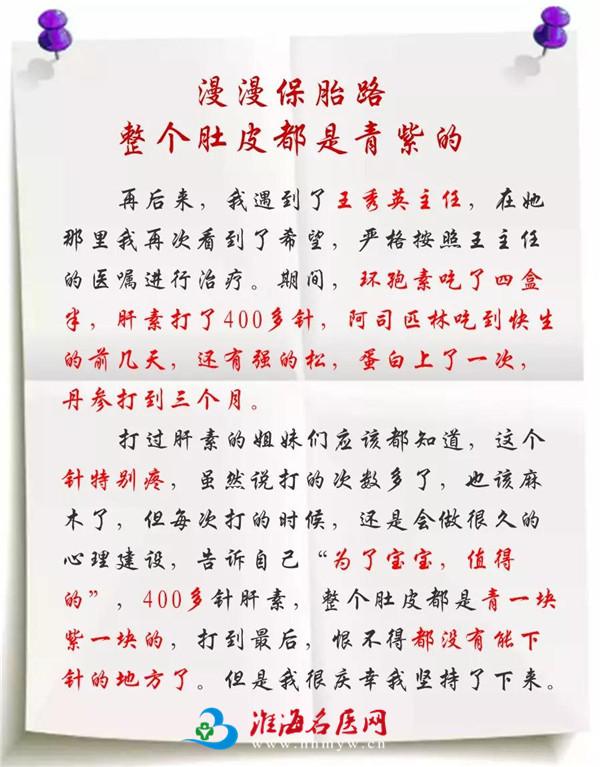 漫漫保胎路
整个肚皮都是青紫的
再后来，我遇到了王秀英主任，在她
那里我再次看到了希望，严格按照王主任
的医嘱进行治疗。期间，环孢素吃了四盒
半，肝素打了400多针，阿司匹林吃到快生
的前几天，还有强的松，蛋白上了一次，
丹参打到三个月。
打过肝素的姐妹们应该都知道，这个
针特别疼，虽然说打的次数多了，也该麻
木了，但每次打的时候，还是会做很久的
心理建设，告诉自己“为了宝宝，值得
的”，400多针肝素，整个肚皮都是青一块
紫一块的，打到最后，恨不得都没有能下
针的地方了。但是我很庆幸我坚持了下来。
淮海名医网
www.hhmyw.cn